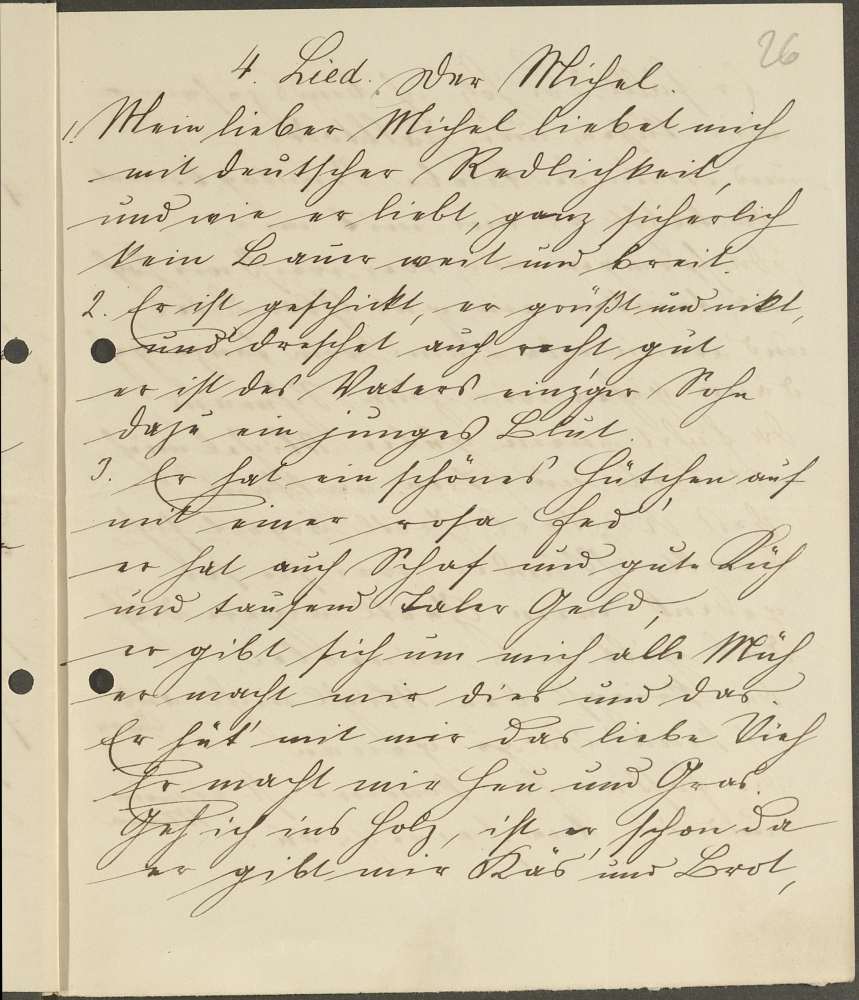 26
4. Lied. Der Michel.
1. Mein lieber Michel liebet mich
mit deutscher Redlichkeit,
und wie er liebt, ganz sicherlich
kein Bauer weit und breit.
2. Er ist geschickt, er grüßt und nikt,
und dreschet auch recht gut
er ist des Vaters einz'ger Sohn
dazu ein junges Blut.
3. Er hat ein schönes Hütchen auf
mit einer rosa Fed'
er hat auch Schaf und gute Küh
und tausend Taler Geld,
er gibt sich um mich alle Müh
er macht mir dies und das.
Er hüt' mit mir das liebe Vieh
Er macht mir Heu und Gras.
Geh ich ins Holz, ist er schon da
er gibt mir Käs' und Brot,